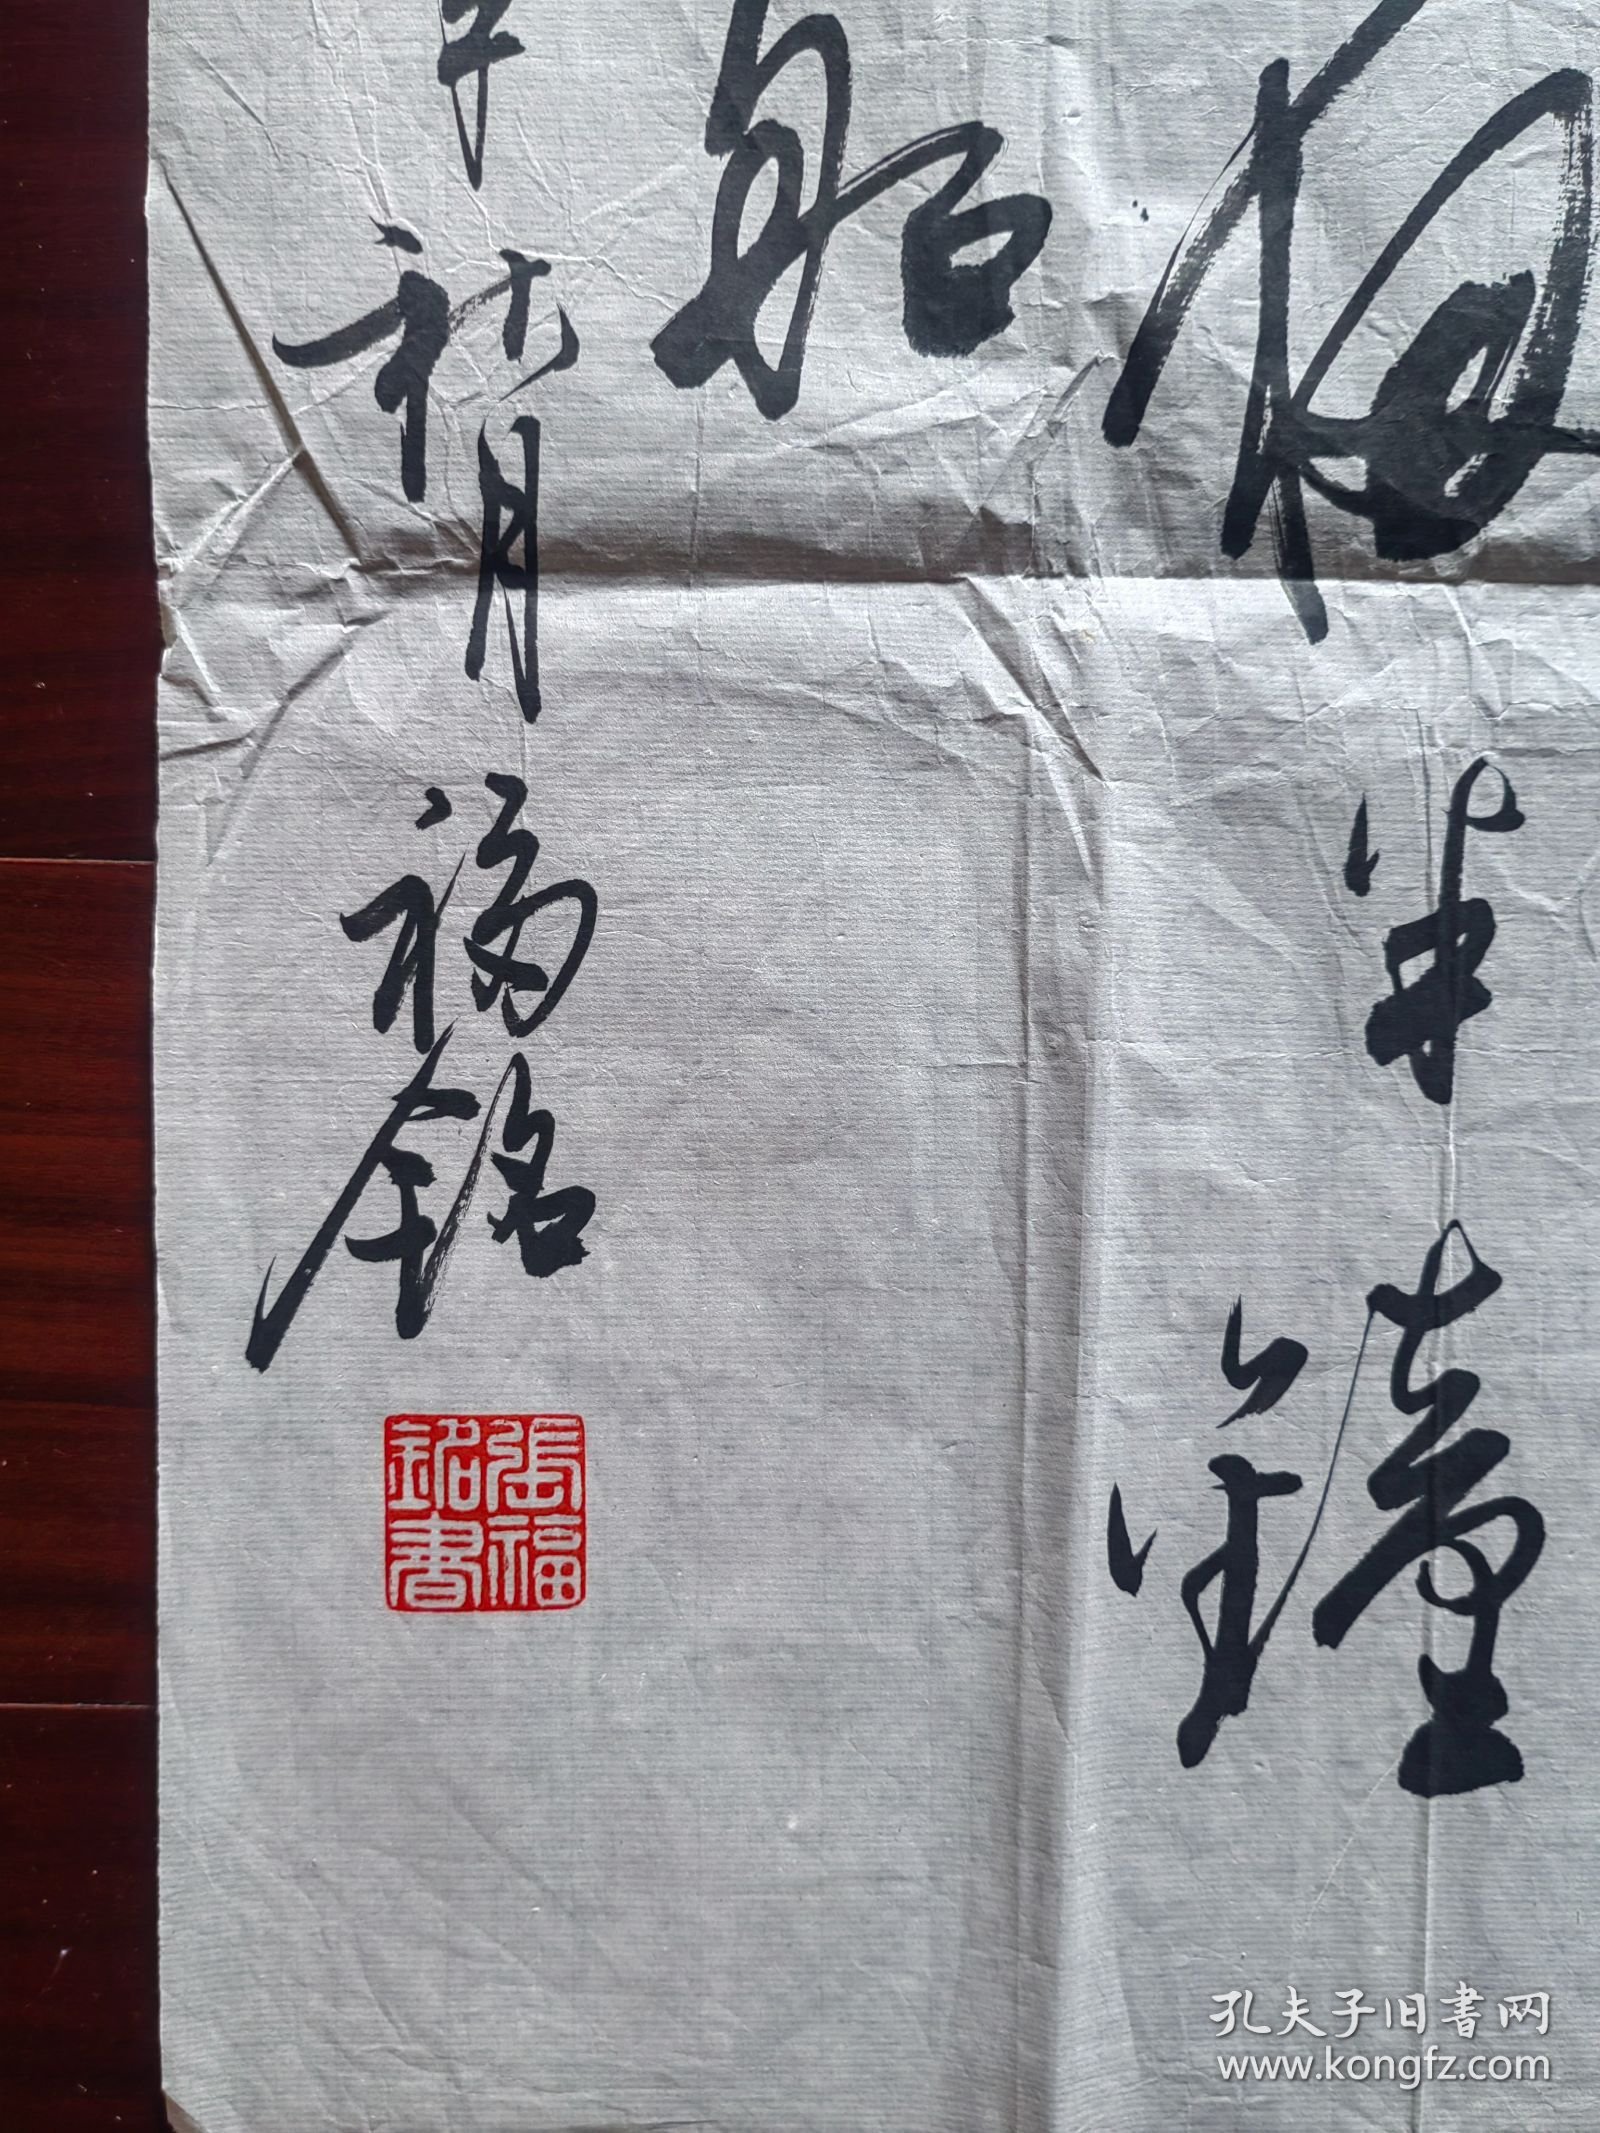 夜半鐘
船
福銘
張福銘書
孔夫子旧书网
www.kongfz.com